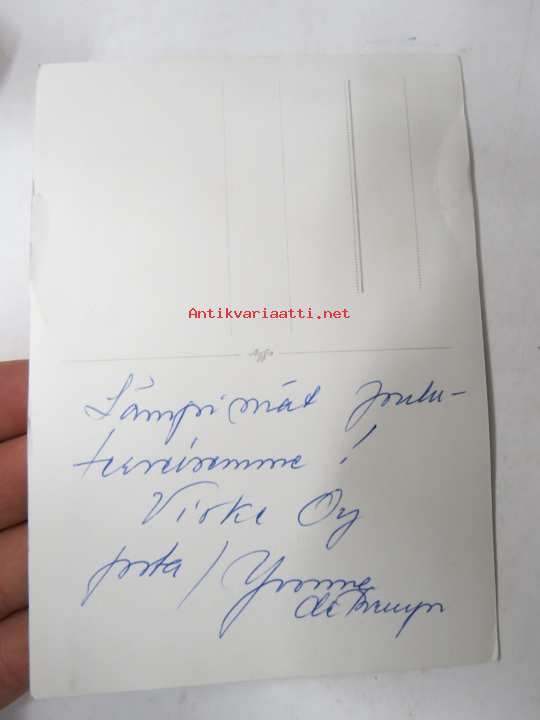 Antikvariaatti.net
Lämpimät Joulu-
tervéisemme!
Virke Oy
psta/Yvonne
de Bruyn